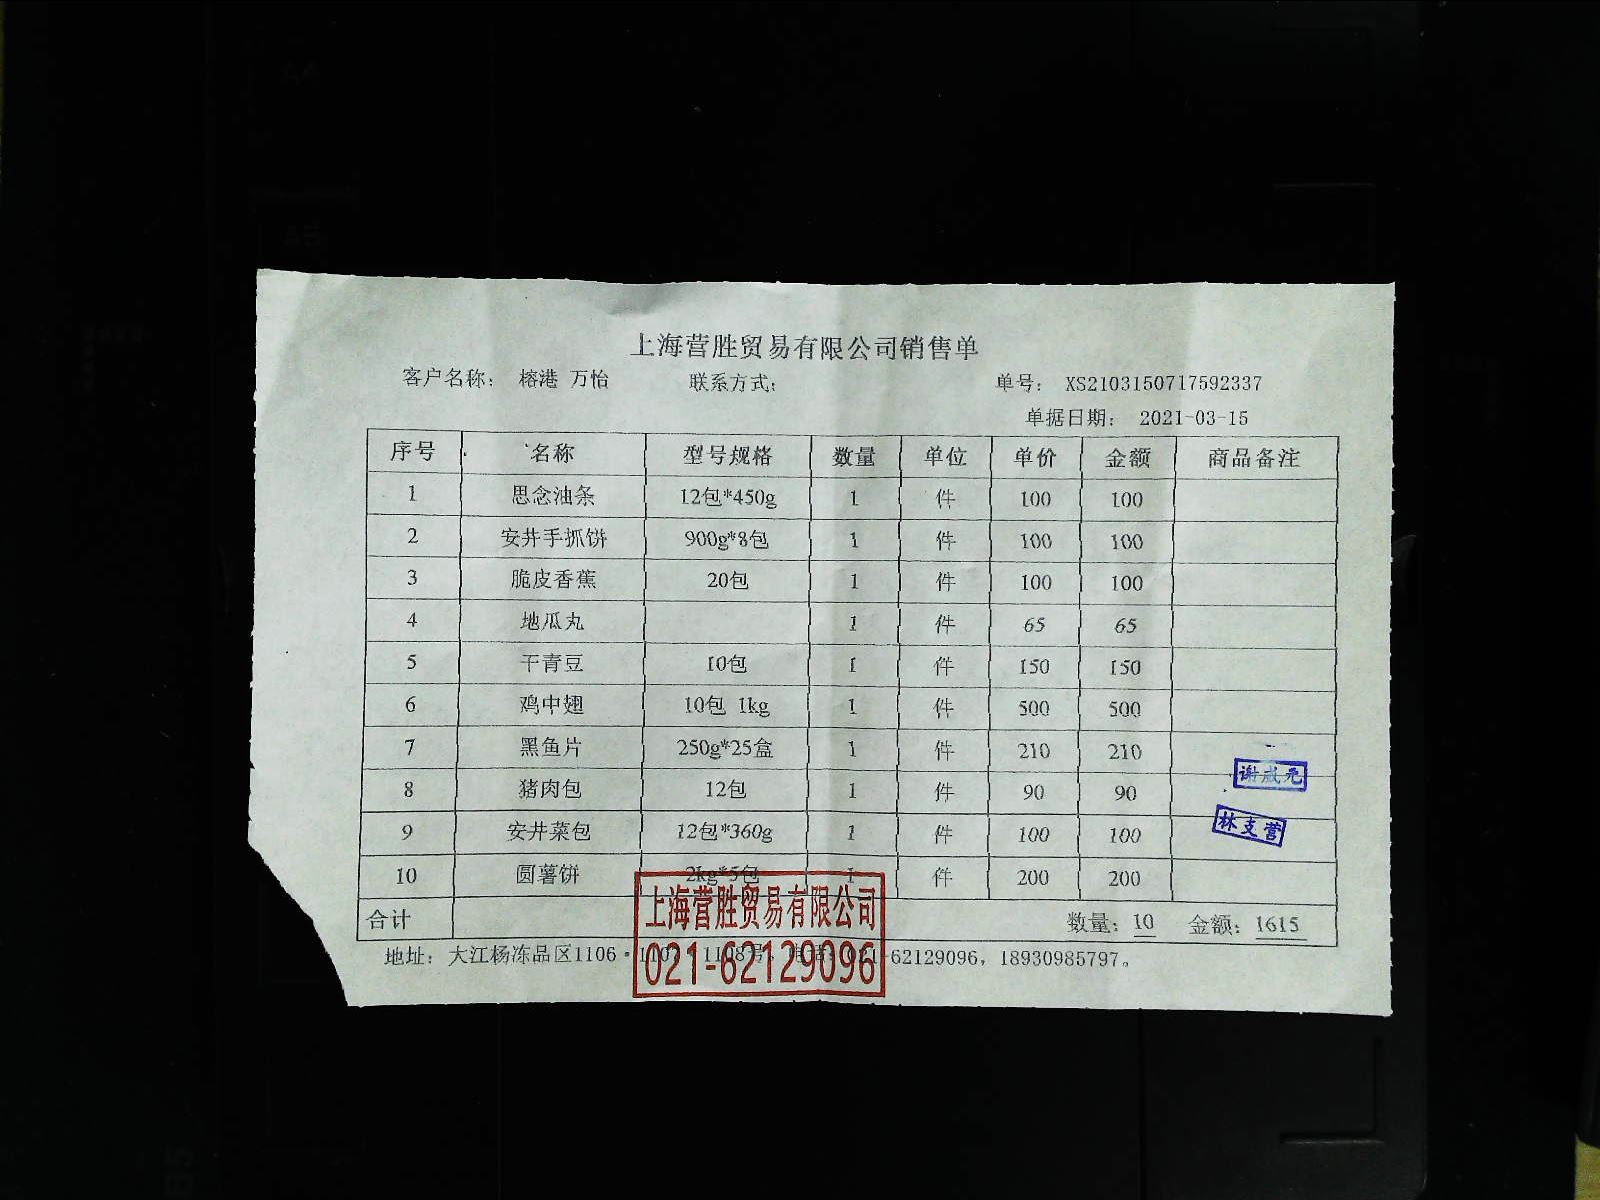 上海营胜贸易有限公司销售单
客户名称： 榕港 万怡 联系方式： 单号： XS2103150717592337
单据日期： 2021-03-15
序号 名称 型号规格 数量 单位 单价 金额 商品备注
1 思念油条 12包*450g 1 件 100 100
2 安井手抓饼 900g*8包 1 件 100 100
3 脆皮香蕉 20包 1 件 100 100
4 地瓜丸 1 件 65 65
5 干青豆 10包 1 件 150 150
6 鸡中翅 10包 1kg 1 件 500 500
7 黑鱼片 250g*25盒 1 件 210 210
谢成元
8 猪肉包 12包 1 件 90 90
林支营
9 安井菜包 12包*360g 1 件 100 100
10 圆薯饼 2kg*5包 1 件 200 200
上海营胜贸易有限公司
合计 数量：10 金额：1615
地址：大江杨冻品区1106·1107·1108号。电话：021-62129096，18930985797。
021-62129096